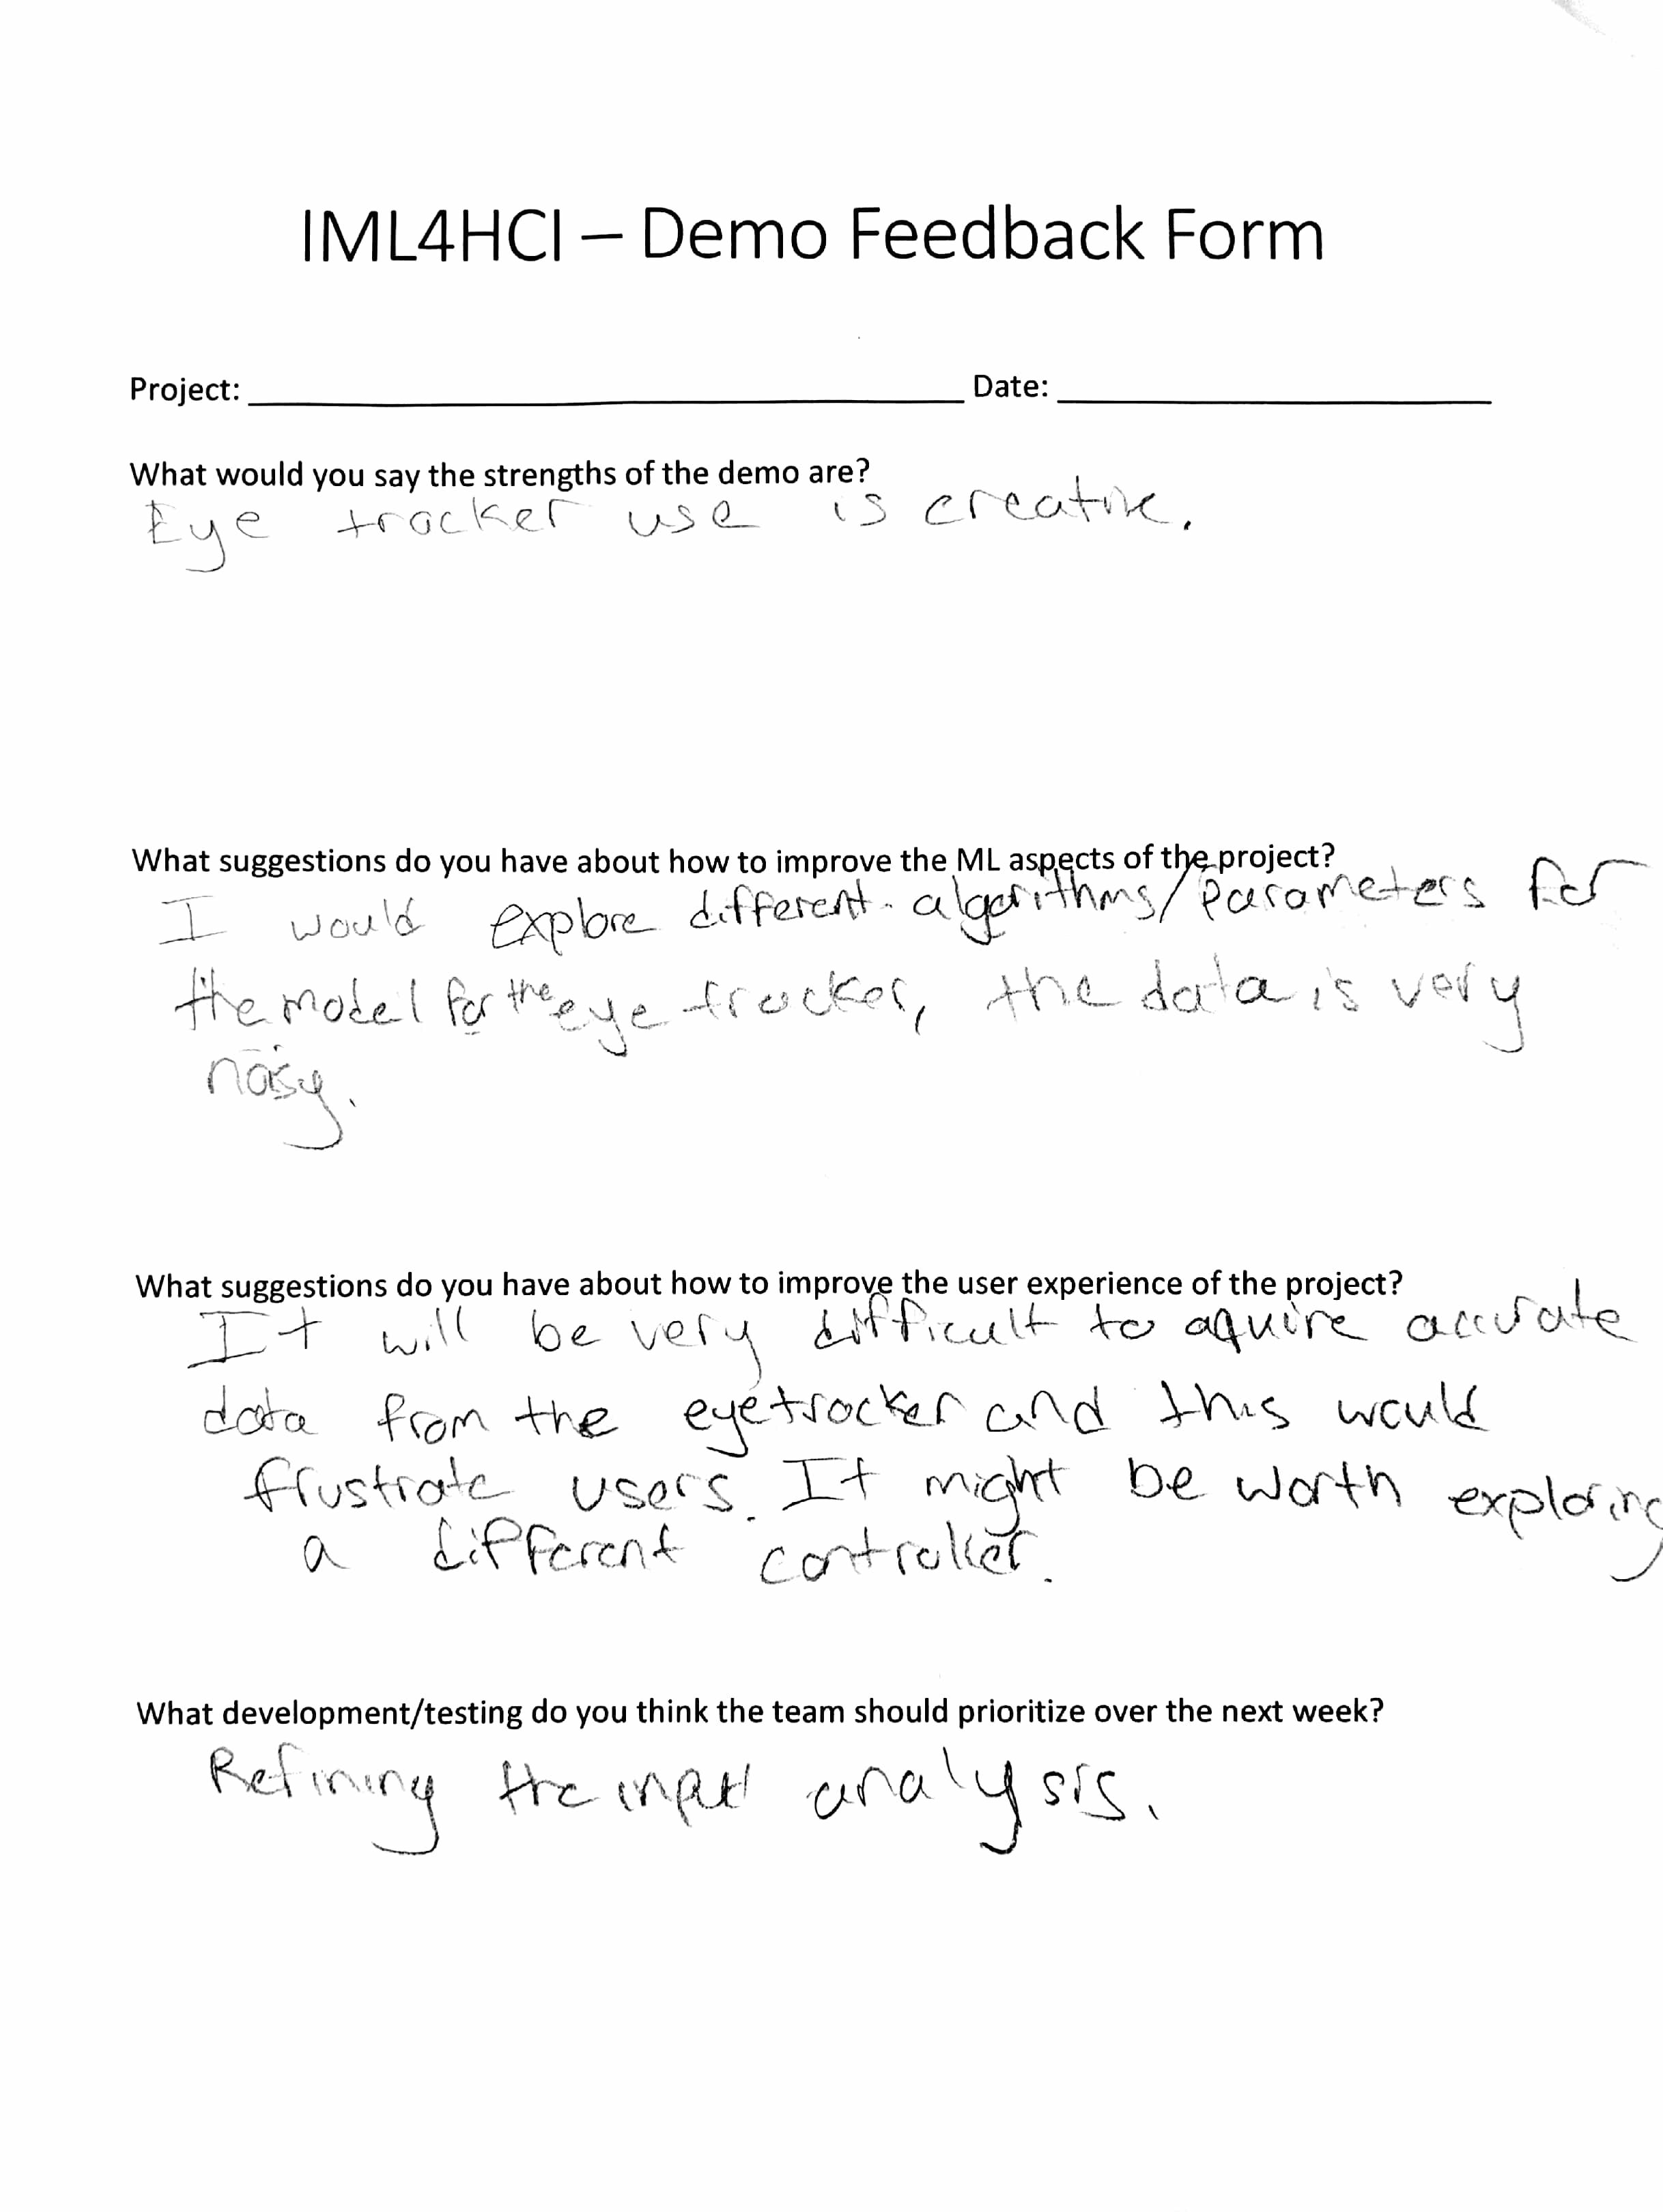 IML4HCI – Demo Feedback Form
Project: Date:
What would you say the strengths of the demo are?
Eye tracker use is creative.
What suggestions do you have about how to improve the ML aspects of the project?
I would explore different algorithms/parameters for
the model for the eye tracker, the data is very
noisy.
What suggestions do you have about how to improve the user experience of the project?
It will be very difficult to aquire accurate
data from the eyetracker and this would
frustrate users. It might be worth exploring
a different controller.
What development/testing do you think the team should prioritize over the next week?
Refining the input analysis.